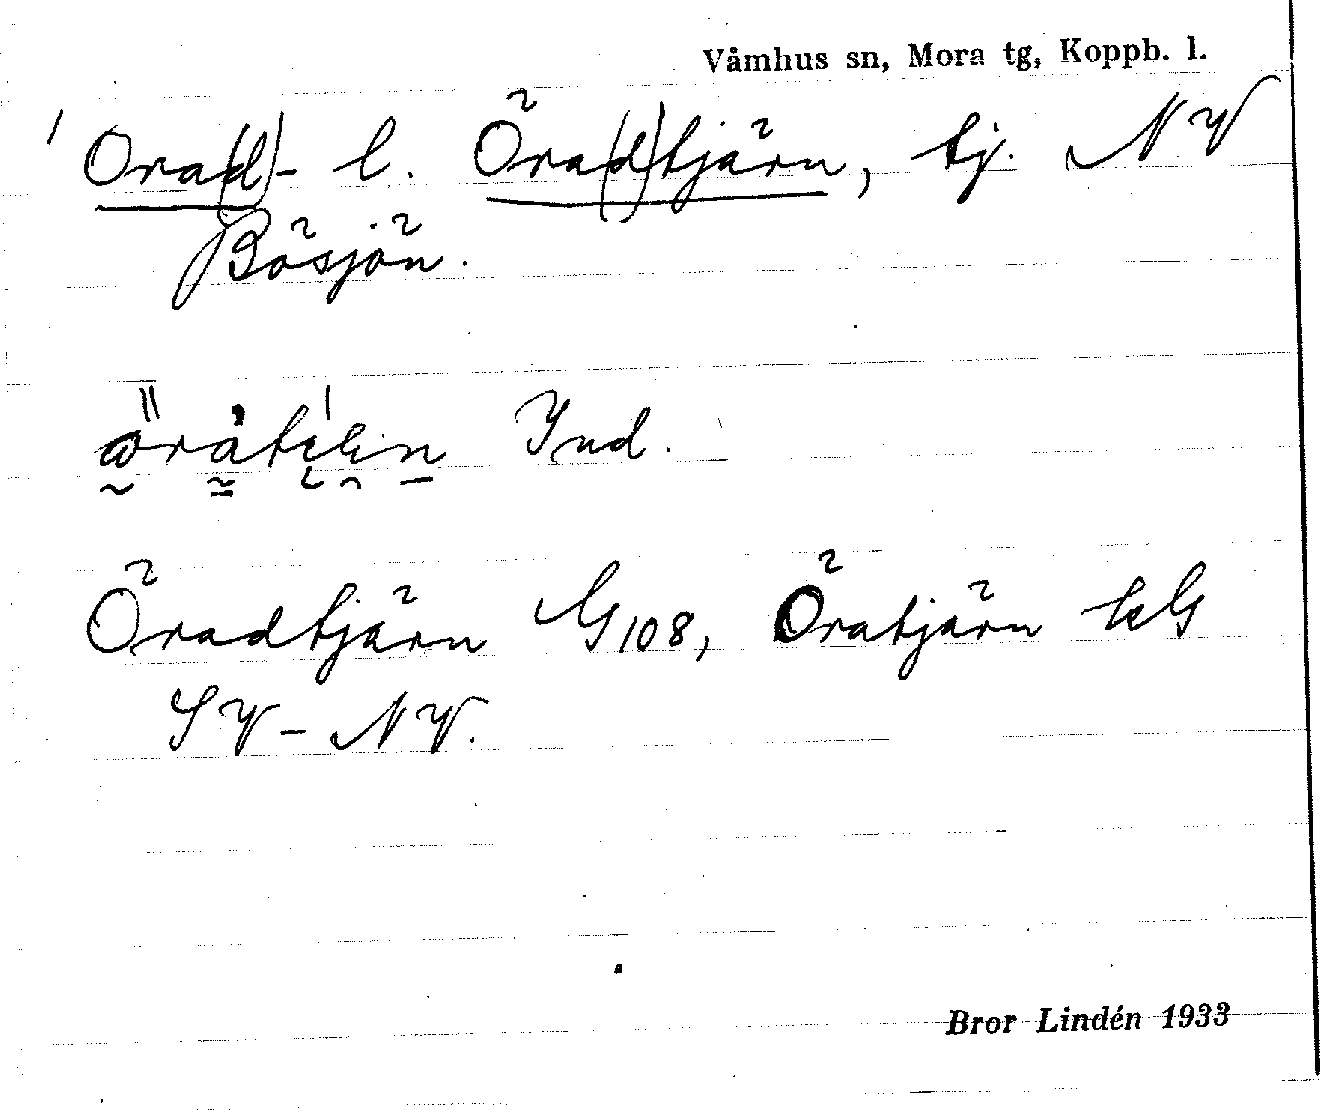 Våmhus sn, Mora tg, Koppb. l.
Ora(d)- l. Öra(d)tjärn, tj. NV
Bösjön.
Ind.
Öradtjärn G108, Öratjärn
SV-NV.
Bror Lindén 1933